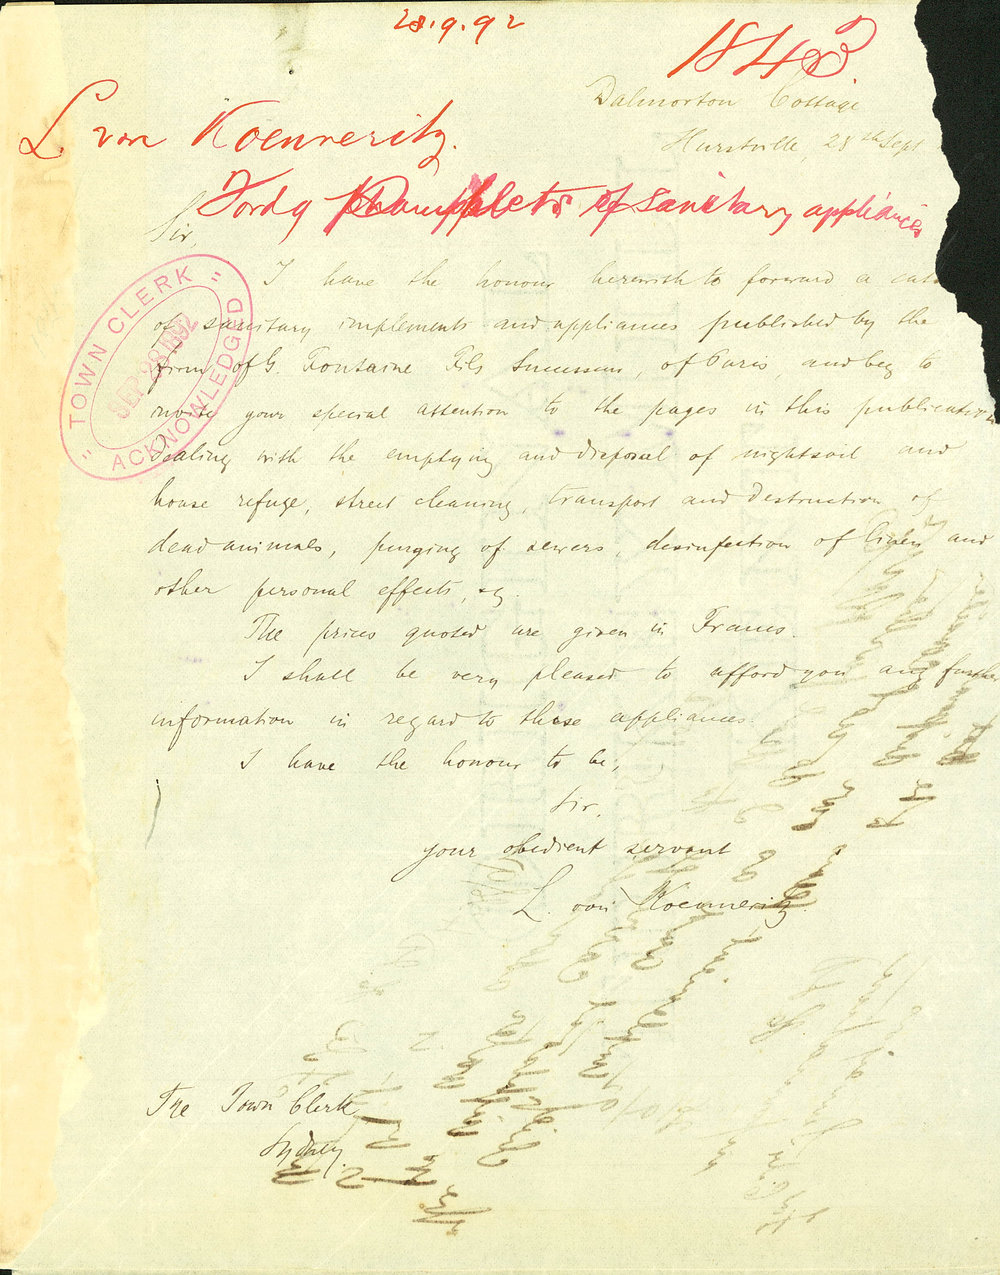 28.9.92
1843
Dalmorton Cottage
Hurstville, 28th Sept
L. von Koenneritz.
Fordg Pamphlets of sanitary appliances
Sir,
TOWN CLERK
SEP 28 1892
ACKNOWLEDGED
I have the honour herewith to forward a cata
of sanitary implements and appliances published by the
firm of G. Fontaine Fils Successeur, of Paris and beg to
your special attention to the pages in this publication
dealing with the emptying and disposal of nightsoil and
house refuge, street cleaning, transport and destruction of
dead animals, purging of sewers, desinfection of linen and
other personal effects, &c.
The prices quoted are given in Francs.
I shall be very pleased to afford you any further
information in regard to these appliances.
I have the honour to be,
Sir,
your obedient servant
L. von Koenneritz.
The Town Clerk
Sydney.